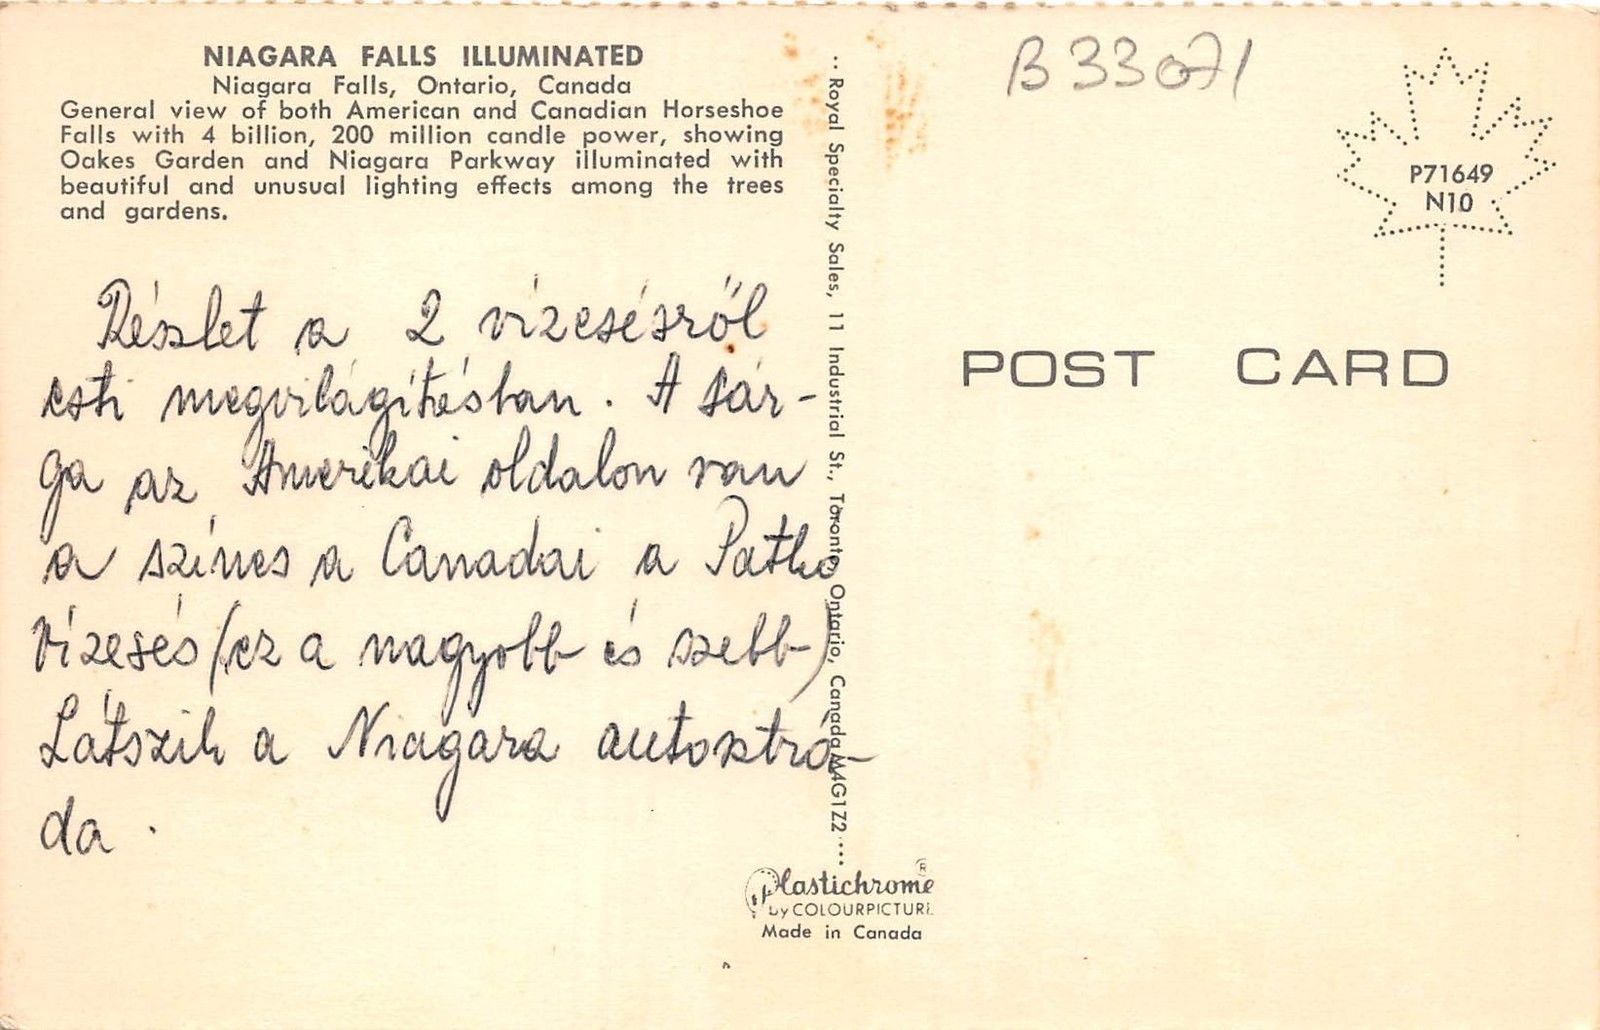 NIAGARA FALLS ILLUMINATED
Niagara Falls, Ontario, Canada
General view of both American and Canadian Horseshoe
Falls with 4 billion, 200 million candle power, showing
Oakes Garden and Niagara Parkway illuminated with
beautiful and unusual lighting effects among the trees
and gardens.
Részlet a 2 vízesésről
esti megvilágításban. A sár-
ga az Amerikai oldalon van
a színes a Canadai a Patko
Vízesés (ez a nagyobb és szebb)
Látszik a Niagara autostrá-
da.
Royal Specialty Sales, 11 Industrial St., Toronto, Ontario, Canada M4G1Z2
Plastichrome ®
by COLOURPICTURE
Made in Canada
B 33071
P71649
N10
POST CARD